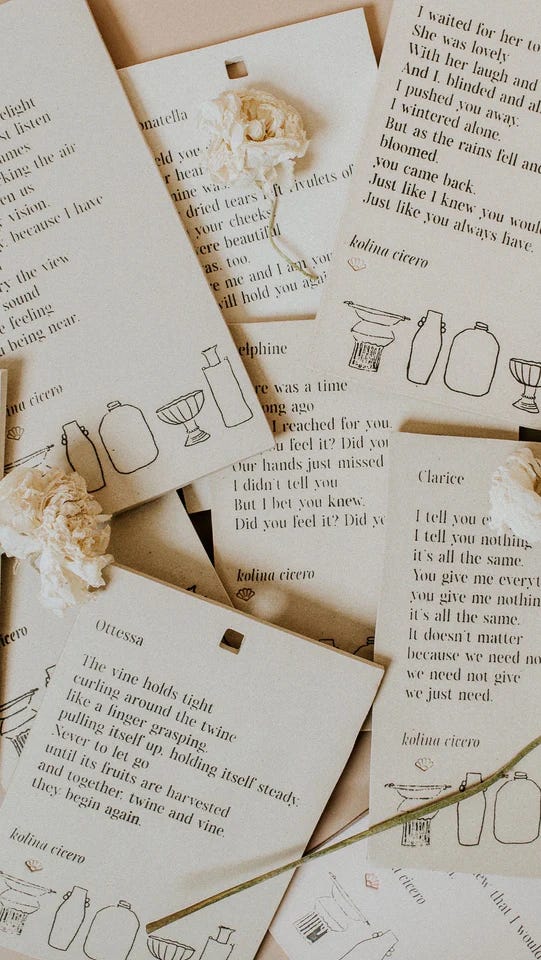 st listen
king the air
en us
vision.
because I have
ry the view
sound
e feeling
being near.
cicero
your cheeks
were beautiful
as, too.
me and I am yo
will hold you agai
I waited for her to
She was lovely
With her laugh and
And I, blinded and al
I pushed you away.
I wintered alone.
But as the rains fell and
bloomed,
you came back.
Just like I knew you woul
Just like you always have.
kolina cicero
elphine
re was a time
ong ago
I reached for you.
u feel it? Did yo
Our hands just missed
I didn't tell you
But I bet you knew.
Did you feel it? Did ye
kolina cicero
Clarice
I tell you e
I tell you nothing
it's all the same.
You give me everyt
you give me nothin
it's all the same.
It doesn't matter
because we need no
we need not give
we just need.
kolina cicero
Ottessa
The vine holds tight
curling around the twine
like a finger grasping,
pulling itself up, holding itself steady.
Never to let go
until its fruits are harvested
and together, twine and vine,
they begin again.
kolina cicero
cicero
cicero
that I would